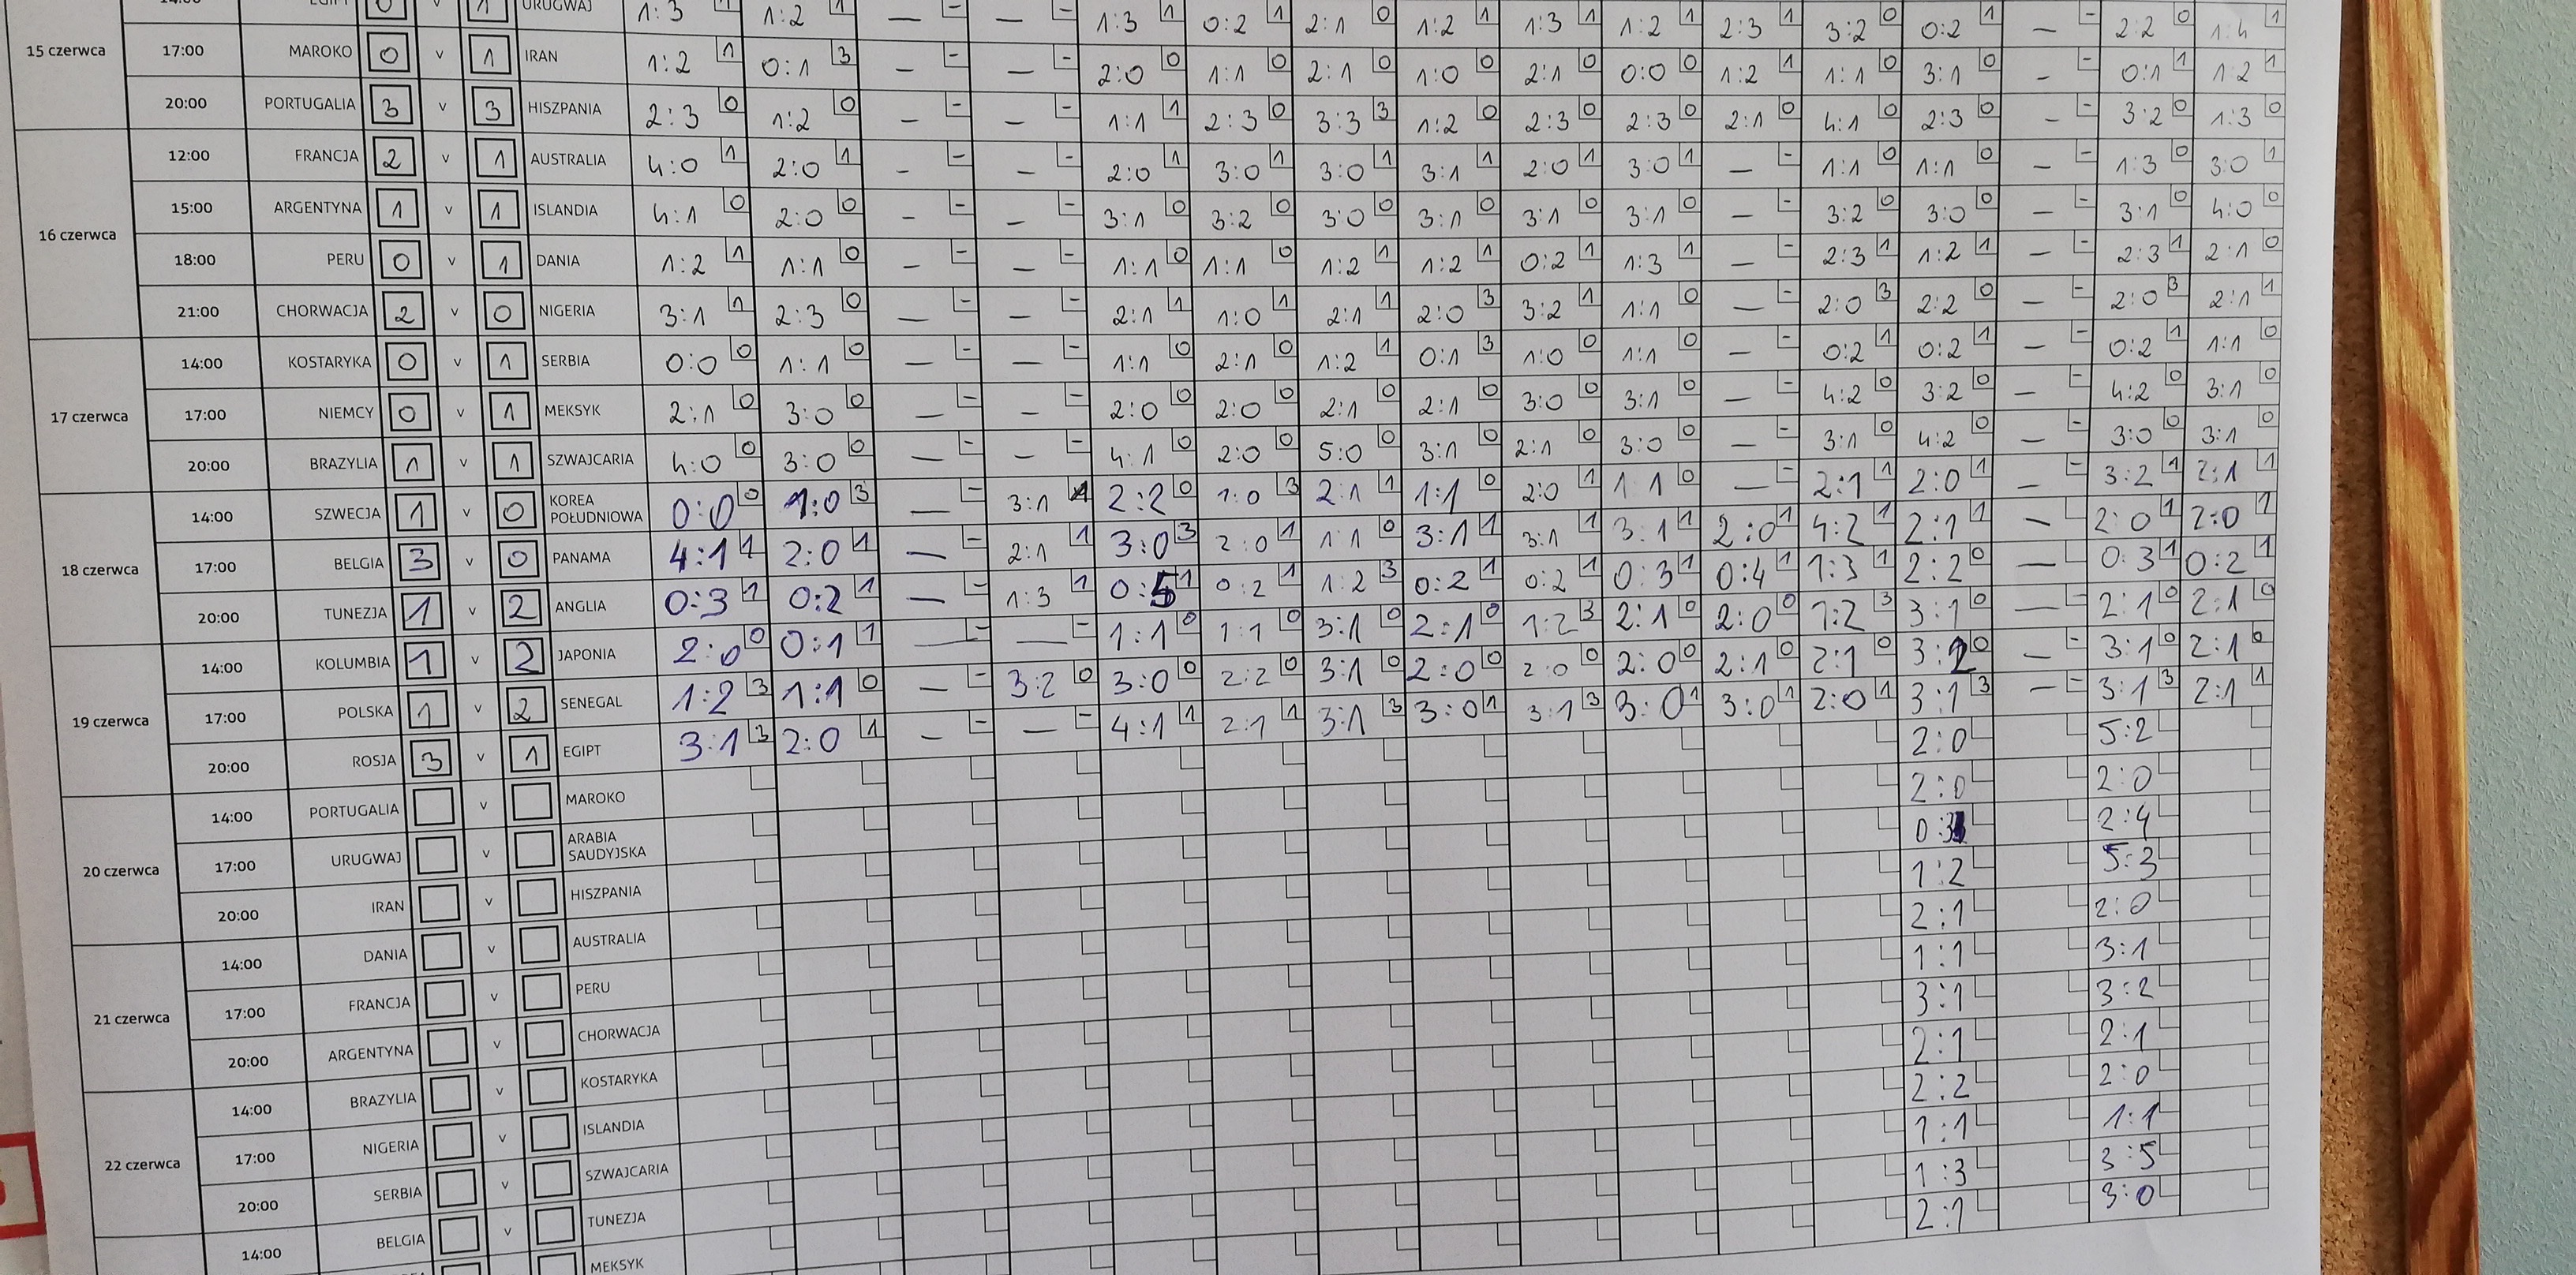 EGIPT 0 v 1 URUGWAJ 1:3 1 1:2 1 — - — - 1:3 1 0:2 1 2:1 0 1:2 1 1:3 1 1:2 1 2:3 1 3:2 0 0:2 1 — - 2:2 0 1:4 1
15 czerwca 17:00 MAROKO 0 v 1 IRAN 1:2 1 0:1 3 — - — - 2:0 0 1:1 0 2:1 0 1:0 0 2:1 0 0:0 0 1:2 1 1:1 0 3:1 0 - - 0:1 1 1:2 1
20:00 PORTUGALIA 3 v 3 HISZPANIA 2:3 0 1:2 0 — - — - 1:1 1 2:3 0 3:3 3 1:2 0 2:3 0 2:3 0 2:1 0 4:1 0 2:3 0 - - 3:2 0 1:3 0
12:00 FRANCJA 2 v 1 AUSTRALIA 4:0 1 2:0 1 - - — - 2:0 1 3:0 1 3:0 1 3:1 1 2:0 1 3:0 1 — - 1:1 0 1:1 0 — - 1:3 0 3:0 1
15:00 ARGENTYNA 1 v 1 ISLANDIA 4:1 0 2:0 0 — - — - 3:1 0 3:2 0 3:0 0 3:1 0 3:1 0 3:1 0 — - 3:2 0 3:0 0 — - 3:1 0 4:0 0
16 czerwca
18:00 PERU 0 v 1 DANIA 1:2 1 1:1 0 — - — - 1:1 0 1:1 0 1:2 1 1:2 1 0:2 1 1:3 1 — - 2:3 1 1:2 1 — - 2:3 1 2:1 0
21:00 CHORWACJA 2 v 0 NIGERIA 3:1 1 2:3 0 — - — - 2:1 1 1:0 1 2:1 1 2:0 3 3:2 1 1:1 0 — - 2:0 3 2:2 0 — - 2:0 3 2:1 1
14:00 KOSTARYKA 0 v 1 SERBIA 0:0 0 1:1 0 — - — - 1:1 0 2:1 0 1:2 1 0:1 3 1:0 0 1:1 0 — - 0:2 1 0:2 1 — - 0:2 1 1:1 0
17 czerwca 17:00 NIEMCY 0 v 1 MEKSYK 2:1 0 3:0 0 — - - - 2:0 0 2:0 0 2:1 0 2:1 0 3:0 0 3:1 0 — - 4:2 0 3:2 0 — - 4:2 0 3:1 0
20:00 BRAZYLIA 1 v 1 SZWAJCARIA 4:0 0 3:0 0 — - - - 4:1 0 2:0 0 5:0 0 3:1 0 2:1 0 3:0 0 — - 3:1 0 4:2 0 — - 3:0 0 3:1 0
14:00 SZWECJA 1 v 0 KOREA
POŁUDNIOWA 0:0 0 1:0 3 — - 3:1 1 2:2 0 1:0 3 2:1 1 1:1 0 2:0 1 1:1 0 — - 2:1 1 2:0 1 — - 3:2 1 2:1 1
18 czerwca 17:00 BELGIA 3 v 0 PANAMA 4:1 1 2:0 1 — - 2:1 1 3:0 3 2:0 1 1:1 0 3:1 1 3:1 1 3:1 1 2:0 1 4:2 1 2:1 1 — 2:0 1 2:0 1
20:00 TUNEZJA 1 v 2 ANGLIA 0:3 1 0:2 1 — - 1:3 1 0:5 1 0:2 1 1:2 3 0:2 1 0:2 1 0:3 1 0:4 1 1:3 1 2:2 0 — 0:3 1 0:2 1
14:00 KOLUMBIA 1 v 2 JAPONIA 2:0 0 0:1 1 — - — - 1:1 0 1:1 0 3:1 0 2:1 0 1:2 3 2:1 0 2:0 0 1:2 3 3:1 0 — - 2:1 0 2:1 0
19 czerwca 17:00 POLSKA 1 v 2 SENEGAL 1:2 3 1:1 0 — - 3:2 0 3:0 0 2:2 0 3:1 0 2:0 0 2:0 0 2:0 0 2:1 0 2:1 0 3:2 0 — - 3:1 0 2:1 0
20:00 ROSJA 3 v 1 EGIPT 3:1 3 2:0 1 — - — - 4:1 1 2:1 1 3:1 3 3:0 1 3:1 3 3:0 1 3:0 1 2:0 1 3:1 3 — - 3:1 3 2:1 1
14:00 PORTUGALIA v MAROKO 2:0 5:2
20 czerwca 17:00 URUGWAJ v ARABIA
SAUDYJSKA 2:0 2:0
20:00 IRAN v HISZPANIA 0:3 2:4
14:00 DANIA v AUSTRALIA 1:2 5:3
21 czerwca 17:00 FRANCJA v PERU 2:1 2:0
20:00 ARGENTYNA v CHORWACJA 1:1 3:1
14:00 BRAZYLIA v KOSTARYKA 3:1 3:2
22 czerwca 17:00 NIGERIA v ISLANDIA 2:1 2:1
20:00 SERBIA v SZWAJCARIA 2:2 2:0
14:00 BELGIA v TUNEZJA 1:1 1:1
MEKSYK 1:3 3:5
2:1 3:0